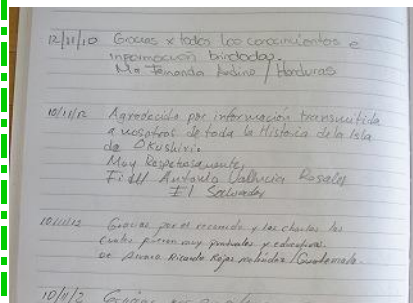 12/11/10 Gracias x todos los conocimientos e
información brindada.
Ma Fernanda Medina / Honduras
10/11/12 Agradecido por información transmitida
a nosotros de toda la Historia de la Isla
de Okushiri.
Muy Respetuosamente,
Antonio Vallecia Rosales
El Salvador
10/11/12 Gracias por el recorrido y las charlas las
cuales fueron muy puntuales y educativas.
Ricardo Rojas / Guatemala.
10/11/2 Gracias por